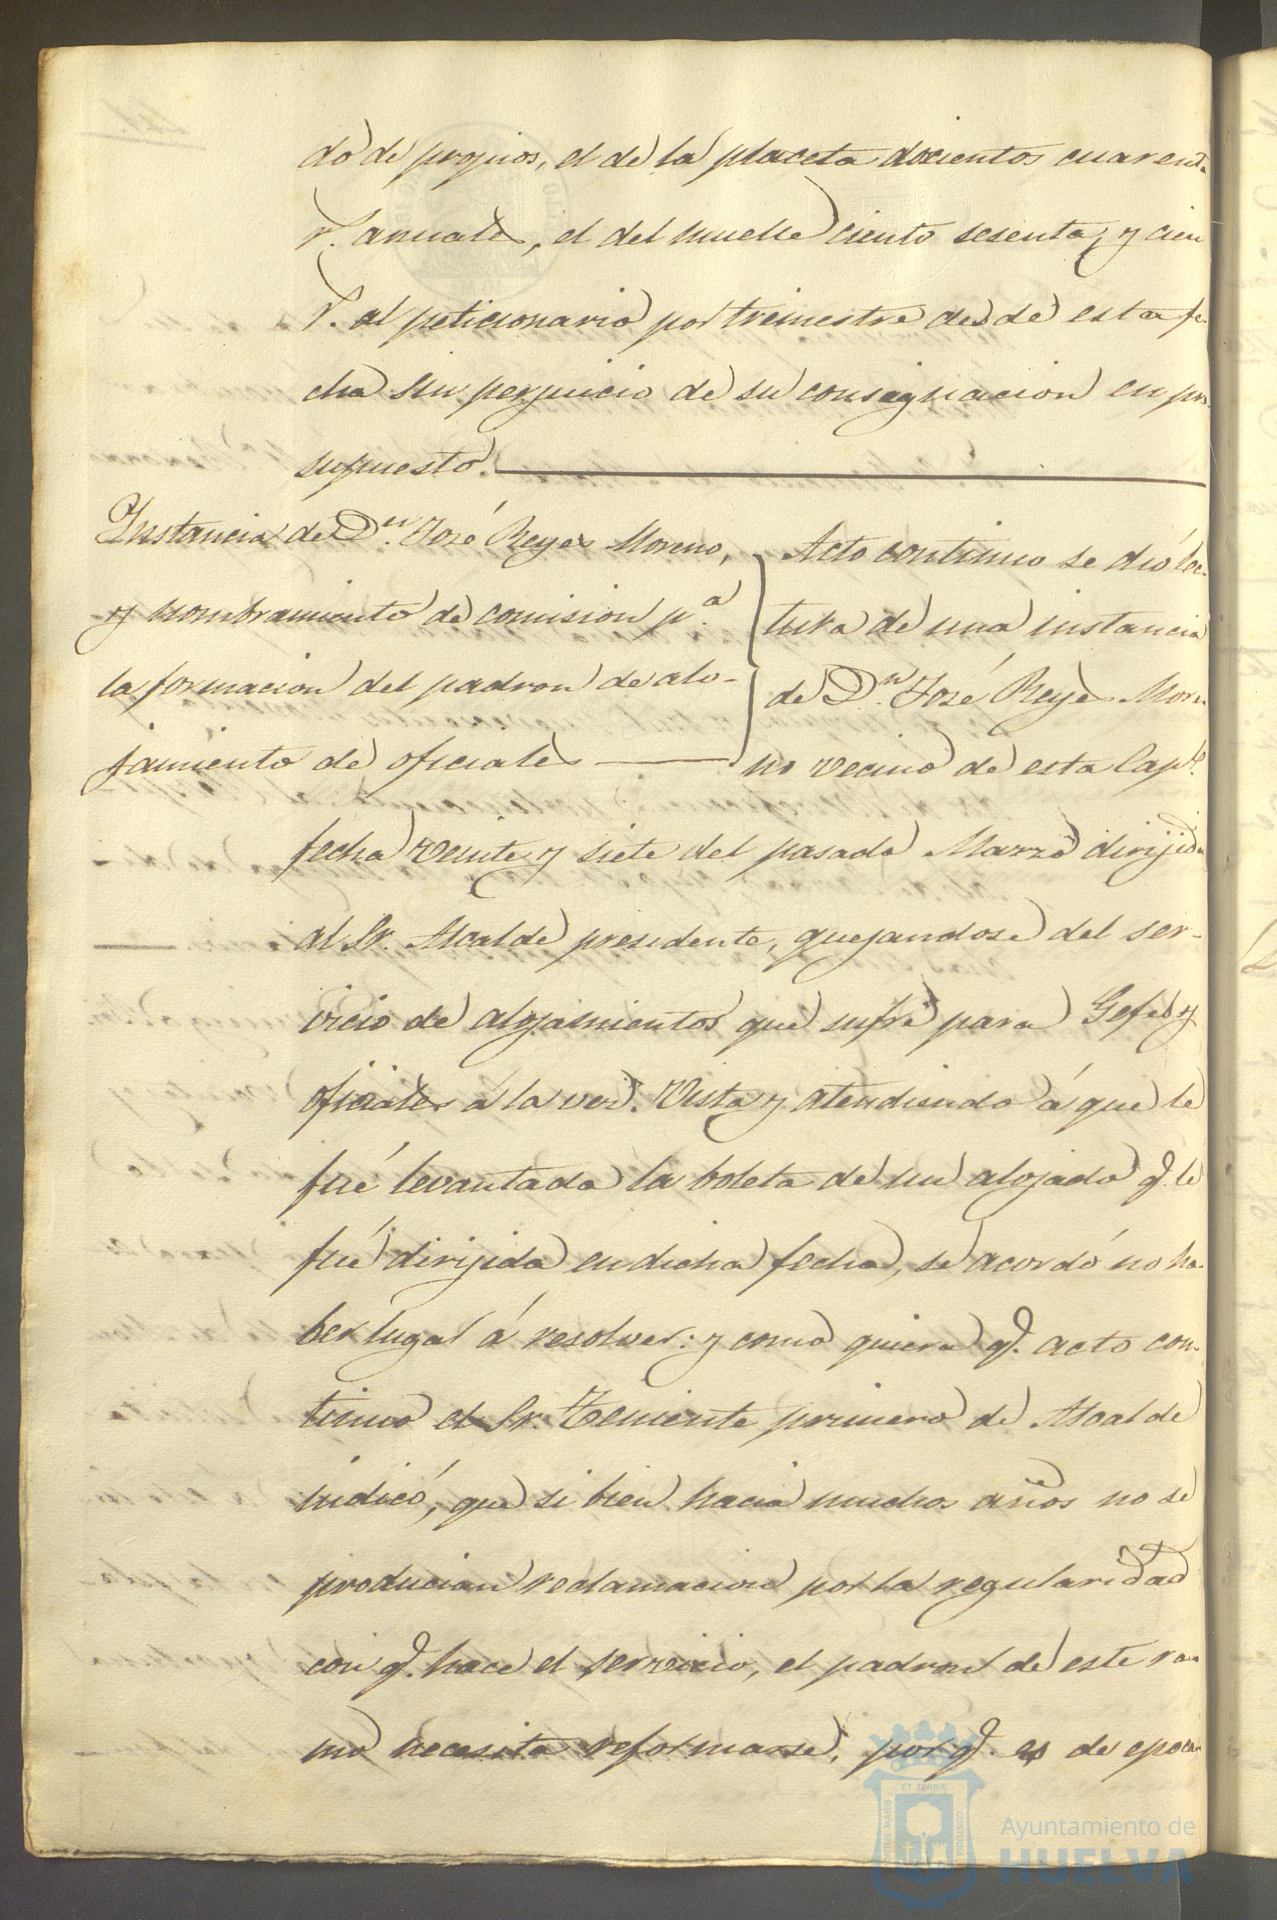 do de propios, el de la placeta docientos cuarenta
r.s anuales, el del muelle ciento sesenta, y cien
r.s al peticionario por trimestre desde esta fe-
cha sin perjuicio de su consignacion en pre-
supuesto.
Instancia de D.n José Reyes Moreno,
y nombramiento de comision p.a
la formacion del padron de alo-
jamiento de oficiales
Acto continuo se dió lec-
tura de una instancia
de D.n José Reyes More-
no vecino de esta Cap.l
fecha veinte y siete del pasado Marzo dirijida
al Sr. Alcalde presidente, quejandose del ser-
vicio de alojamientos que sufre para Gefes y
oficiales á la vez. Vista y atendiendo á que le
fué levantada la boleta de un alojado q.e le
fué dirijida en dicha fecha, se acordó no ha-
ber lugar á resolver: y como quiera q.e acto con-
tinuo el Sr. Teniente primero de Alcalde
indicó, que si bien hacia muchos años no se
producian reclamacion por la regularidad
con q.e hace el servicio, el padron de este ra-
mo necesita reformarse, por q.e es de epoca
ET TERRÆ
PORTUS MARIS
CUSTODIA
Ayuntamiento de
HUELVA